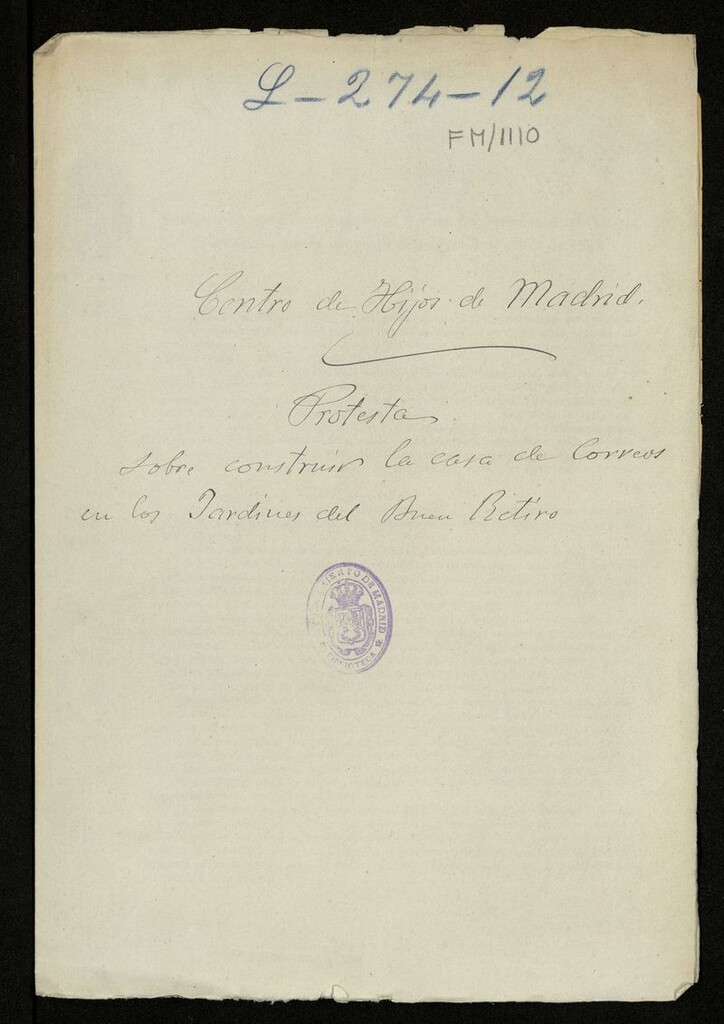 L-274-12
FM/1110
Centro de Hijos de Madrid.
Protesta
sobre construir la casa de Correos
en los Jardines del Buen Retiro
AYUNTAMIENTO DE MADRID
BIBLIOTECA